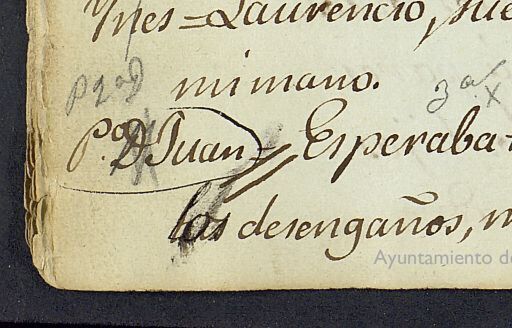 Ynes = Laurencio, sue
mi mano.
P 2º D
3ª x
P.º D Juan = Esperaba
los desengaños, m
Ayuntamiento de